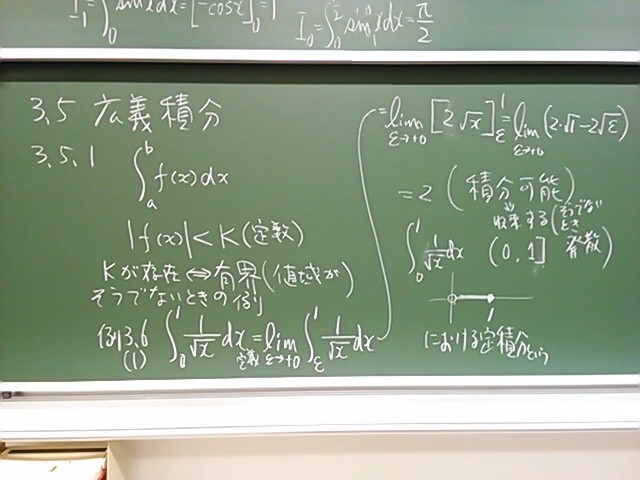 I₁ = ∫₀ sinx dx = [-cosx]₀ = 1
I₀ = ∫₀ sin⁰x dx = π/2
3.5 広義積分
3.5.1 ∫ₐᵇ f(x)dx
|f(x)| < K (定数)
Kが存在 ⇔ 有界 (値域が)
そうでないときの例
例3.6 (1) ∫₀¹ 1/√x dx = lim_{ε→+0} ∫_ε¹ 1/√x dx
定義
= lim_{ε→+0} [2√x]_ε¹ = lim_{ε→+0} (2·√1-2√ε)
= 2 (積分可能)
収束する (そうでないとき 発散)
∫₀¹ 1/√x dx (0, 1]
1
における定積分という